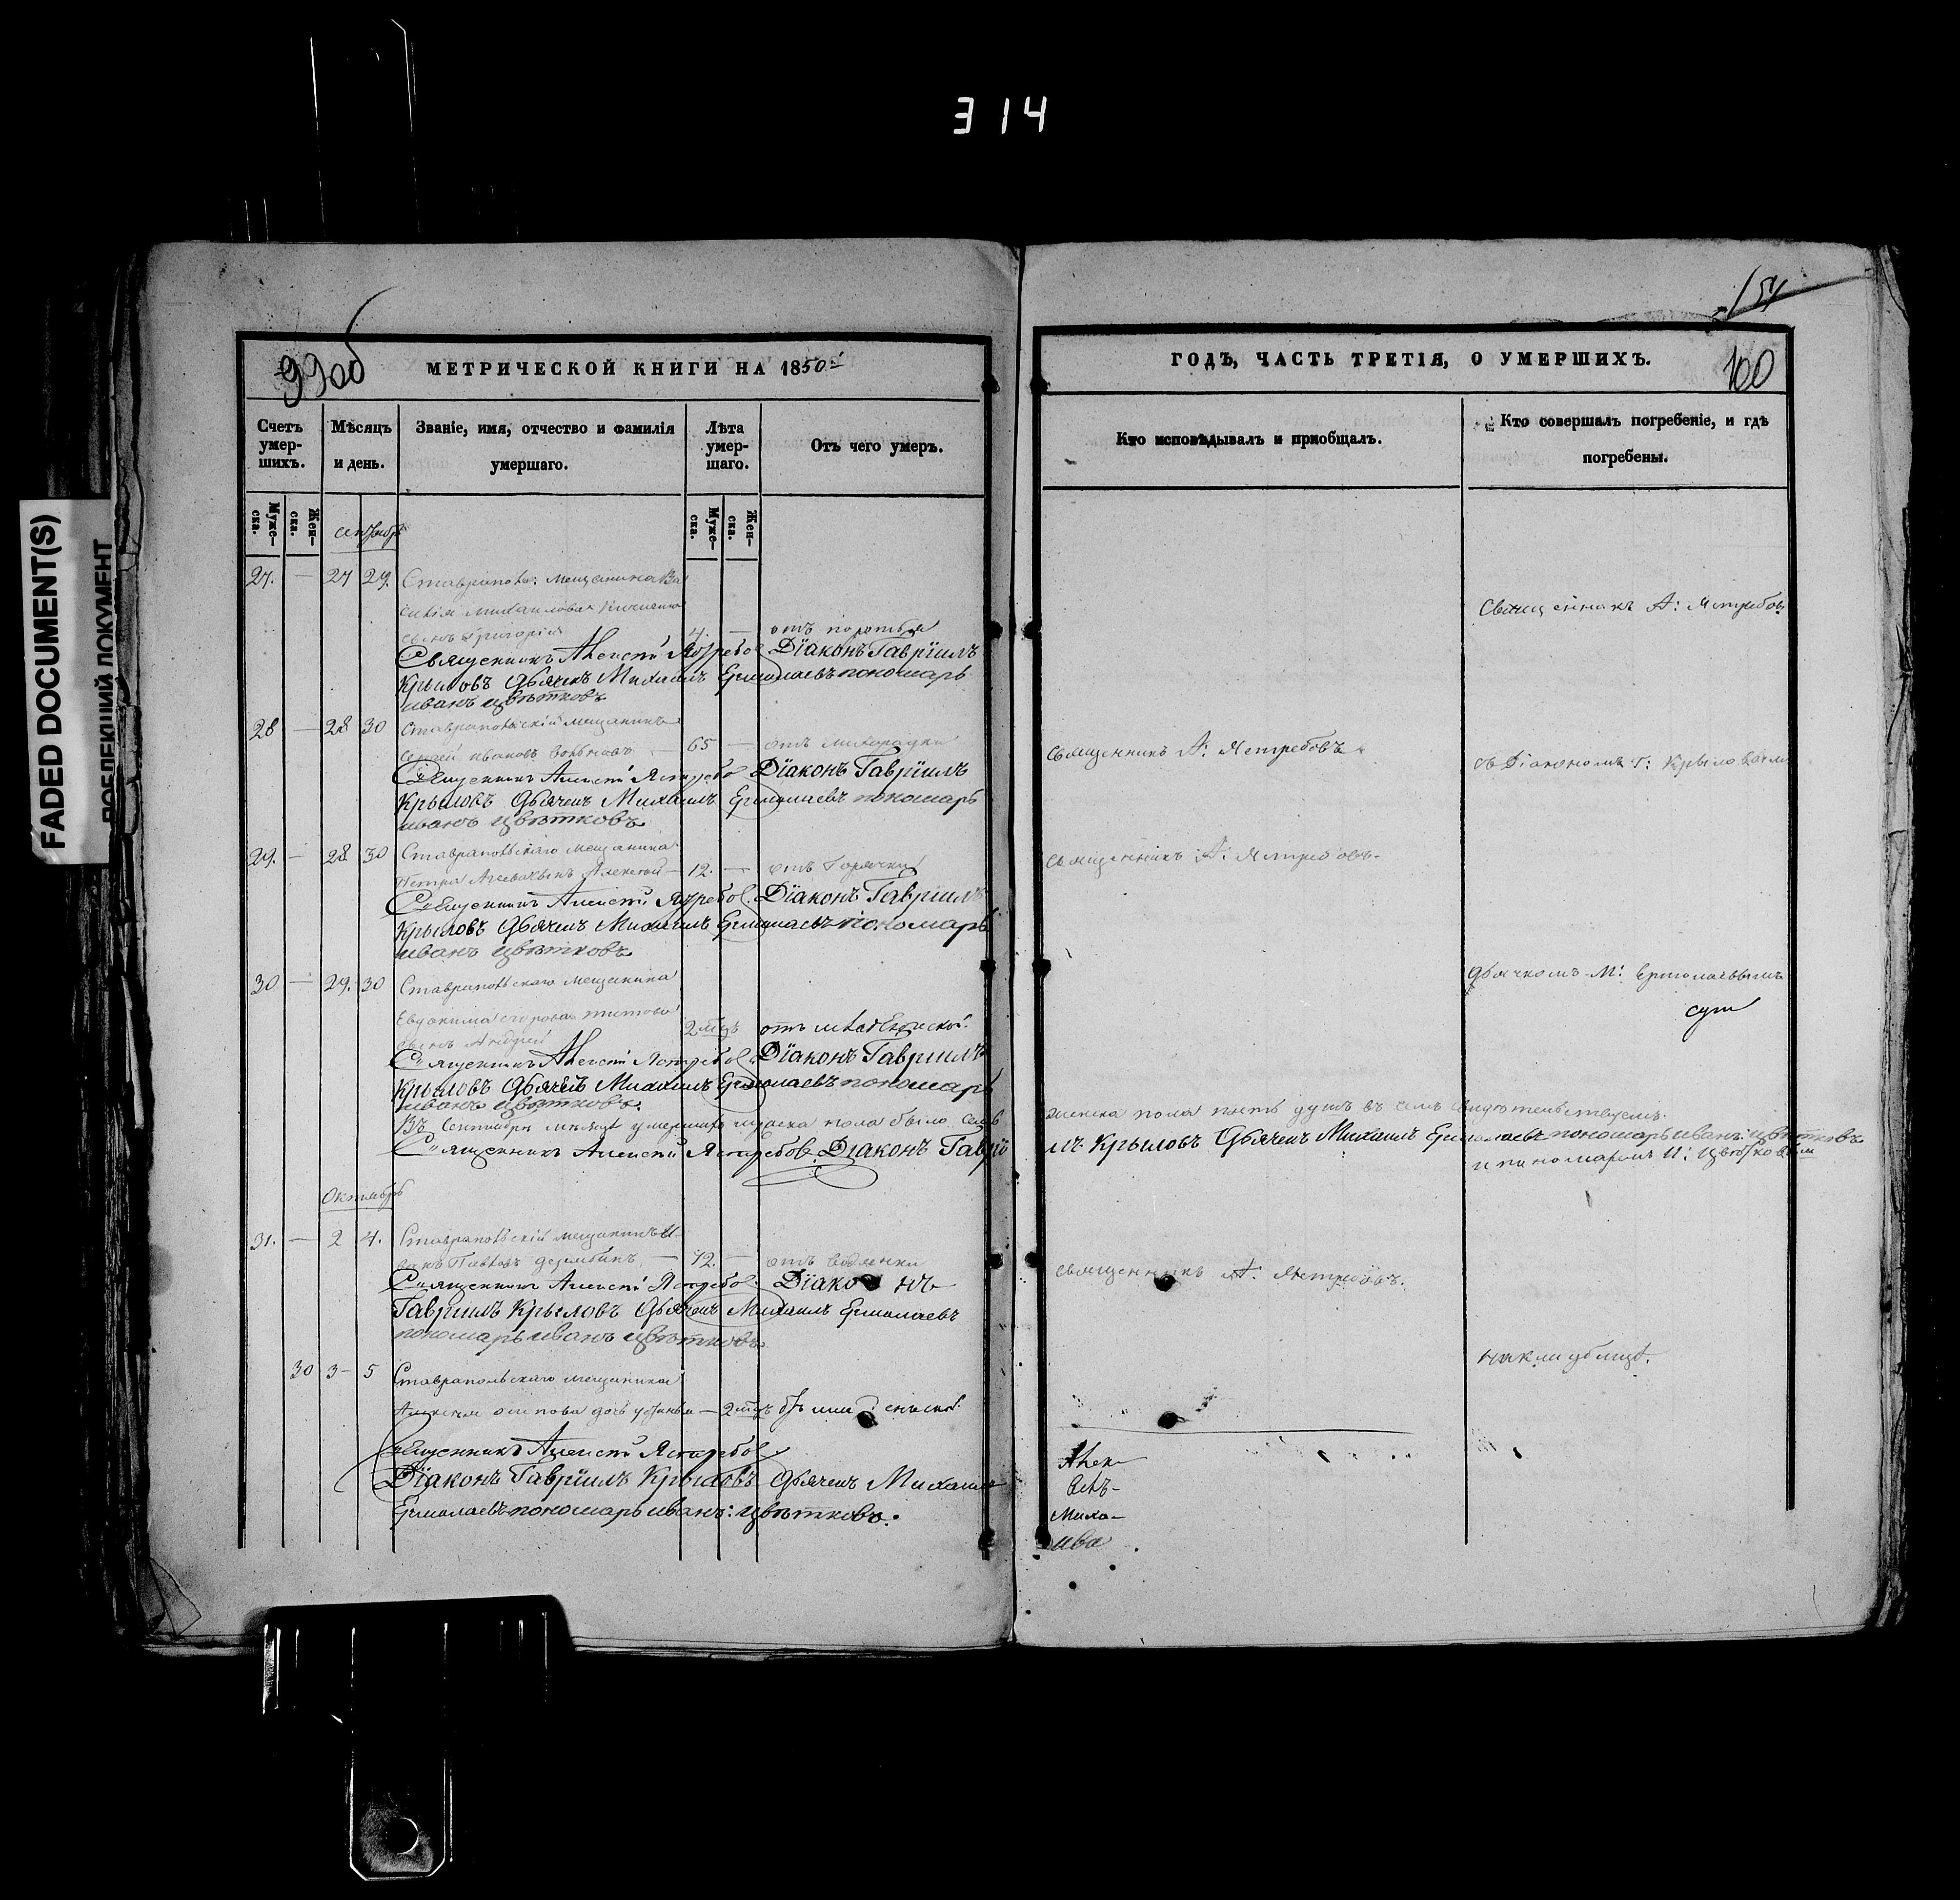 314
FADED DOCUMENT(S)
154
99об
МЕТРИЧЕСКОЙ КНИГИ НА 1850й
ГОДЪ, ЧАСТЬ ТРЕТІЯ, О УМЕРШИХЪ.
100
Счетъ умер-шихъ.
Мѣсяцъ и день.
Званіе, имя, отчество и фамилія умершаго.
Лѣта умер-шаго.
Отъ чего умеръ.
Кто исповѣдывалъ и приобщалъ.
Кто совершалъ погребеніе, и гдѣ погребены.
Муже-ска.
Жен-ска.
Муже-ска.
Жен-ска.
сентябрь
27. — 27 29. Ставрапольс: мещанина Ва
силія Михаилова
сынъ Григорій 4. — отъ
Священникъ А: Ястребовъ
Священникъ Алексѣй Ястребов Діаконъ Гавріилъ
Крыловъ Дьячекъ Михаилъ Ермолаевъ пономарь
иванъ цвѣтковъ
28 — 28 30 Ставрапольскій мещанинъ
Сергей ивановъ — 65 — отъ лихорадки
священникъ А: Ястребовъ
съ Діакономъ Г: Крыловымъ
Священникъ Алексѣй Ястребов Діаконъ Гавріилъ
Крыловъ Дьячекъ Михаилъ Ермолаевъ пономарь
иванъ цвѣтковъ
29. — 28 30 Ставрапольскаго мещанина
Петра сынъ Алексей — 12. — отъ Горячки
священникъ А: Ястребовъ.
Священникъ Алексѣй Ястребов. Діаконъ Гавріилъ
Крыловъ Дьячекъ Михаилъ Ермолаевъ пономарь
иванъ цвѣтковъ
30 — 29. 30 Ставрапольскаго мещанина
Евдокима Титова
сынъ Андрей 2 мцъ отъ младенческой.
дьячкомъ М: Ермолаевымъ
Священникъ Алексѣй Ястребов. Діаконъ Гавріилъ
Крыловъ Дьячекъ Михаилъ Ермолаевъ пономарь
иванъ цвѣтковъ.
Въ Сентябрѣ мѣсяцѣ умершихъ мужска пола было семь
женска пола пять душъ въ чемъ свидѣтельствуемъ.
Священникъ Алексѣй Ястребов. Діаконъ Гаврiи
лъ Крыловъ Дьячекъ Михаилъ Ермолаевъ пономарь иванъ: цвѣтковъ
и пономаремъ И: Цвѣтковымъ
Октябрь
31. — 2 4. Ставрапольскій мещанинъ И-
ванъ Павловъ — 72. — отъ водянки
священникъ А. Ястребовъ.
Священникъ Алексѣй Ястребов. Діаконъ
Гавріилъ Крыловъ Дьячекъ Михаилъ Ермолаевъ
пономарь иванъ цвѣтковъ
на кладбищѣ.
30 3 — 5 Ставрапольскаго мещанина
Алексея осипова дочь Устинья — 2 мцъ
Священникъ Алексѣй Ястребов
Діаконъ Гавріилъ Крыловъ Дьячекъ Михаилъ
Ермолаевъ пономарь иванъ: цвѣтковъ.
Алек-
Миха-
ива